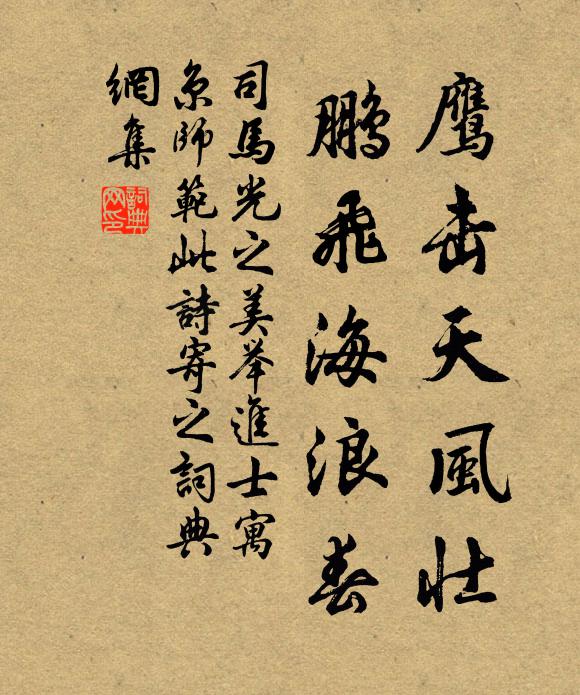 鹰击天風壮
鵬飛海浪春
司馬光之美举進士寓
京師範此詩寄之詞典
網集
詞典网印